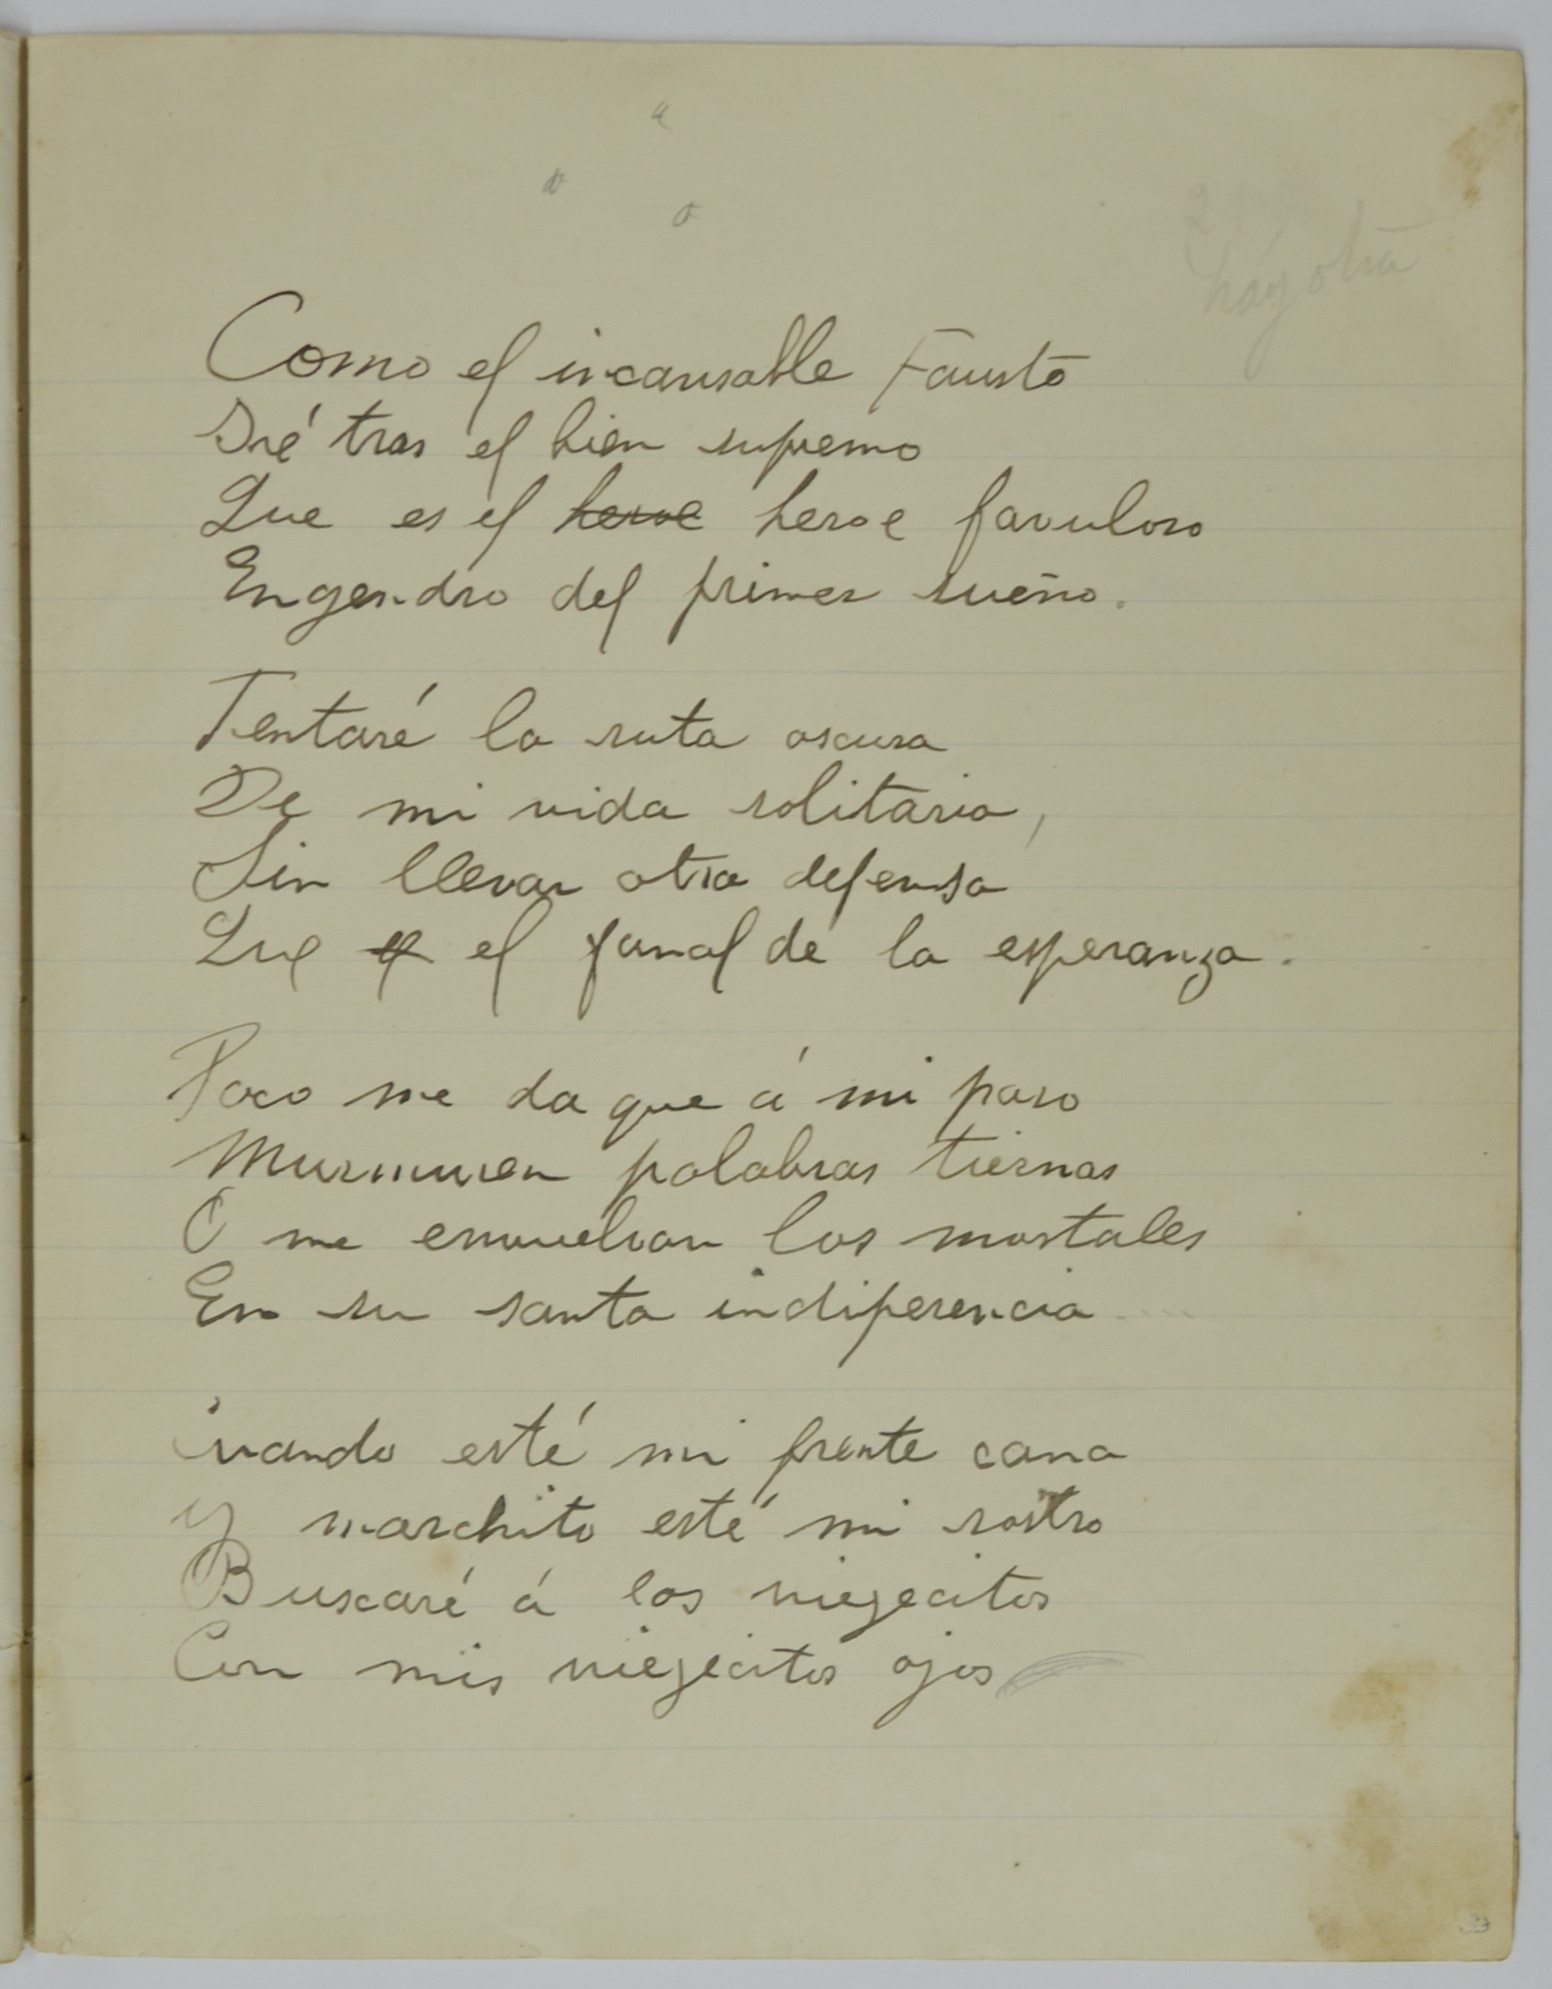 hay otra
Como el incansable Fausto
Iré tras el bien supremo
Que es el heroe heroe favuloso
Engendro del primer sueño.
Tentaré la ruta oscura
De mi vida solitaria,
Sin llevar otra defensa
Que el fanal de la esperanza.
Poco me da que á mi paso
Murmuren palabras tiernas
O me envuelvan los mortales
En su santa indiferencia....
Cuando esté mi frente cana
Y marchito esté mi rostro
Buscaré á los viejecitos
Con mis viejecitos ojos